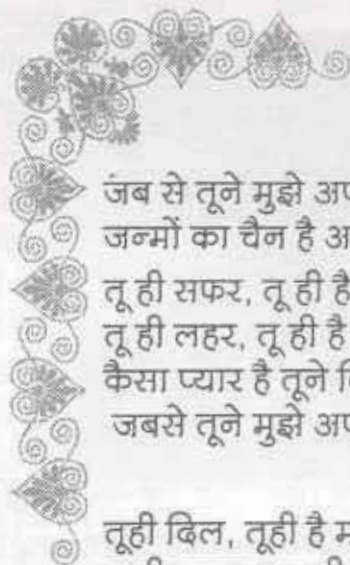 जब से तूने मुझे
जन्मों का चैन है
तू ही सफर, तू ही है
तू ही लहर, तू ही है
कैसा प्यार है तूने
जबसे तूने मुझे
तूही दिल, तूही है